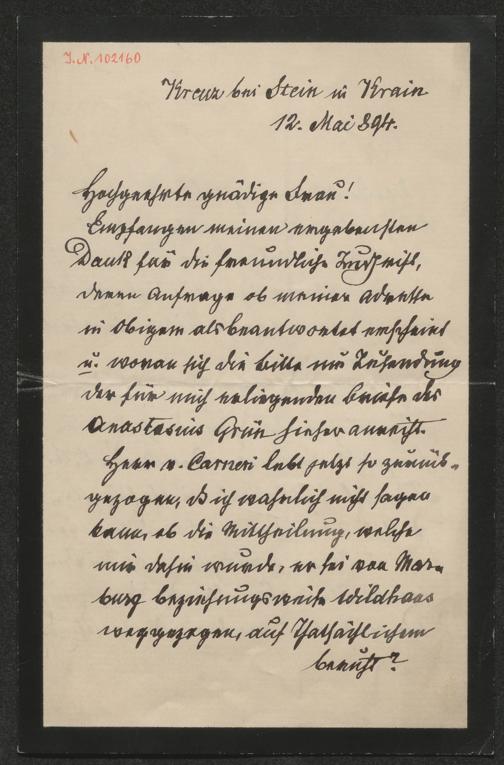 J. N. 102160
Kreuz bei Stein in Krain
12. Mai 894.
Hochgeehrte gnädige Frau!
Empfangen meinen ergebensten
Dank für die freundliche Zuschrift,
deren Anfrage ob meiner Adresse
in Obigem als beantwortet erscheint
u. woran sich die Bitte um Zusendung
der für mich erliegenden Briefe des
Anastasius Grün hieher anreiht.
Herr v. Carneri lebt jetzt so zurück-
gezogen, daß ich wahrlich nicht sagen
kann, ob die Mittheilung, welche
mir dahin wurde, er sei von Mar-
burg beziehungsweise Wildhaus
weggezogen, auf Thatsächlichem
beruht?